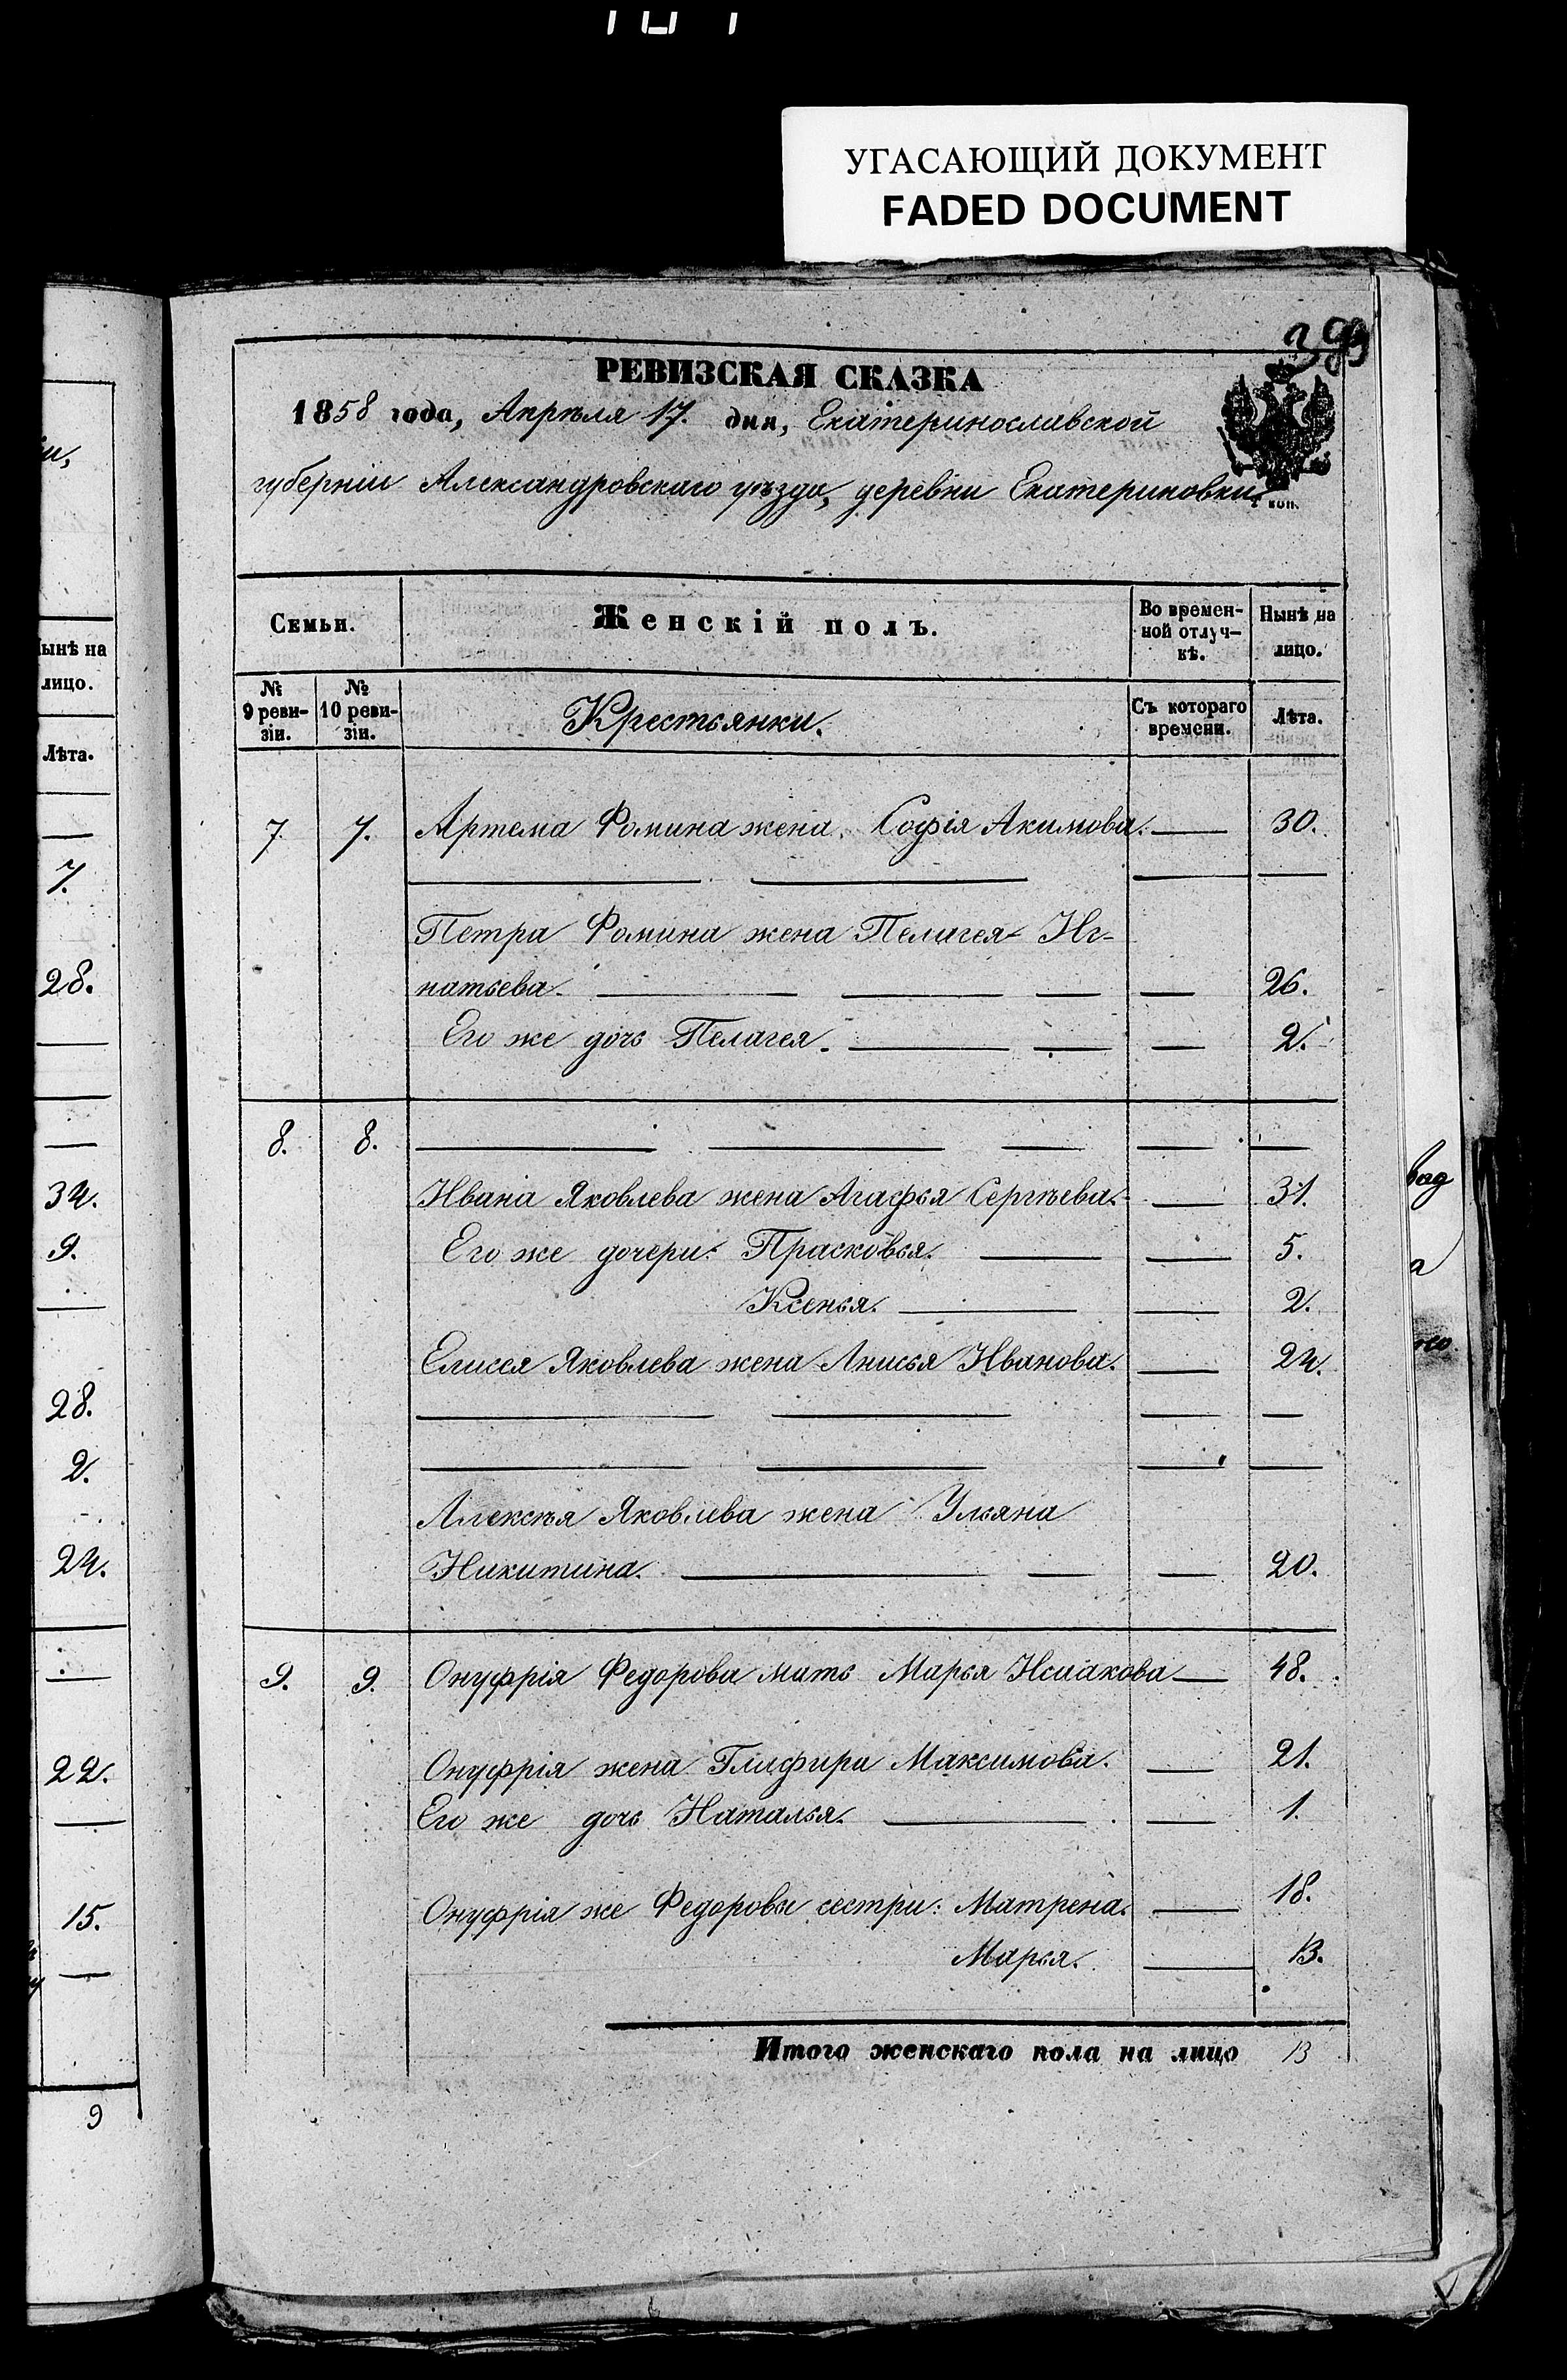 УГАСАЮЩИЙ ДОКУМЕНТ
FADED DOCUMENT
РЕВИЗСКАЯ СКАЗКА
1858 года, Апрѣля 17. дня, Екатеринославской
губерніи Александровскаго уѣзда, деревни Екатериновки
коп.
Семьи. Женскій полъ. Во времен- Нынѣ на
ной отлуч- лицо.
кѣ.
№ № Крестьянки. Съ котораго Лѣта.
9 реви- 10 реви- времени.
зіи. зіи.
7. 7. Артема Фомина жена Софія Акимова. — 30.
Петра Фомина жена Пелагея Иг-
натьева. — 26.
Его же дочь Пелагея. — 2.
8. 8. —
Ивана Яковлева жена Агафья Сергѣева. — 31.
Его же дочери: Прасковья. — 5.
Ксенья. — 2.
Елисея Яковлева жена Анисья Иванова. — 24.
Алексѣя Яковлева жена Ульяна
Никитина. — 20.
9. 9. Онуфрія Федорова мать Марья Исаакова — 48.
Онуфрія жена Глафира Максимова. — 21.
Его же дочь Наталья. — 1.
Онуфрія же Федоровы сестры: Матрена. — 18.
Марья. — 13.
Итого женскаго пола на лицо 13
Нынѣ на
лицо.
Лѣта.
7.
28.
34.
9.
28.
2.
24.
22.
15.
9